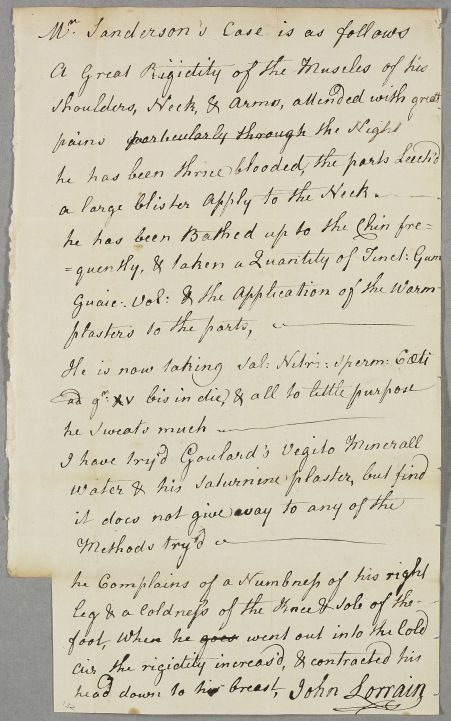 Mr. Sanderson's Case is as follows
A Great Rigidity of the Muscles of his
Shoulders, Neck, & Arms, attended with great
pains particularly through the Night
he has been thrice blooded, the parts Leech'd
a large blister Apply to the Neck.
he has been Bathed up to the Chin fre=
=quently, & taken a Quantity of Tinct: Gum
Guaic: Vol: & the Application of the Warm
plasters to the parts,
He is now taking Sal: Nitri: Sperm: Cæti
ad gr: XV bis in die, & all to little purpose
he Sweats much
I have try'd Goulard's Vegito Minerall
Water & his Saturnine plaster, but find
it does not give way to any of the
Methods try'd
he Complains of a Numbness of his right
leg & a Coldness of the Knee & Sole of the
foot, When he goes went out into the Cold
air the rigidity increas'd, & contracted his
head down to his breast, John Lorrain